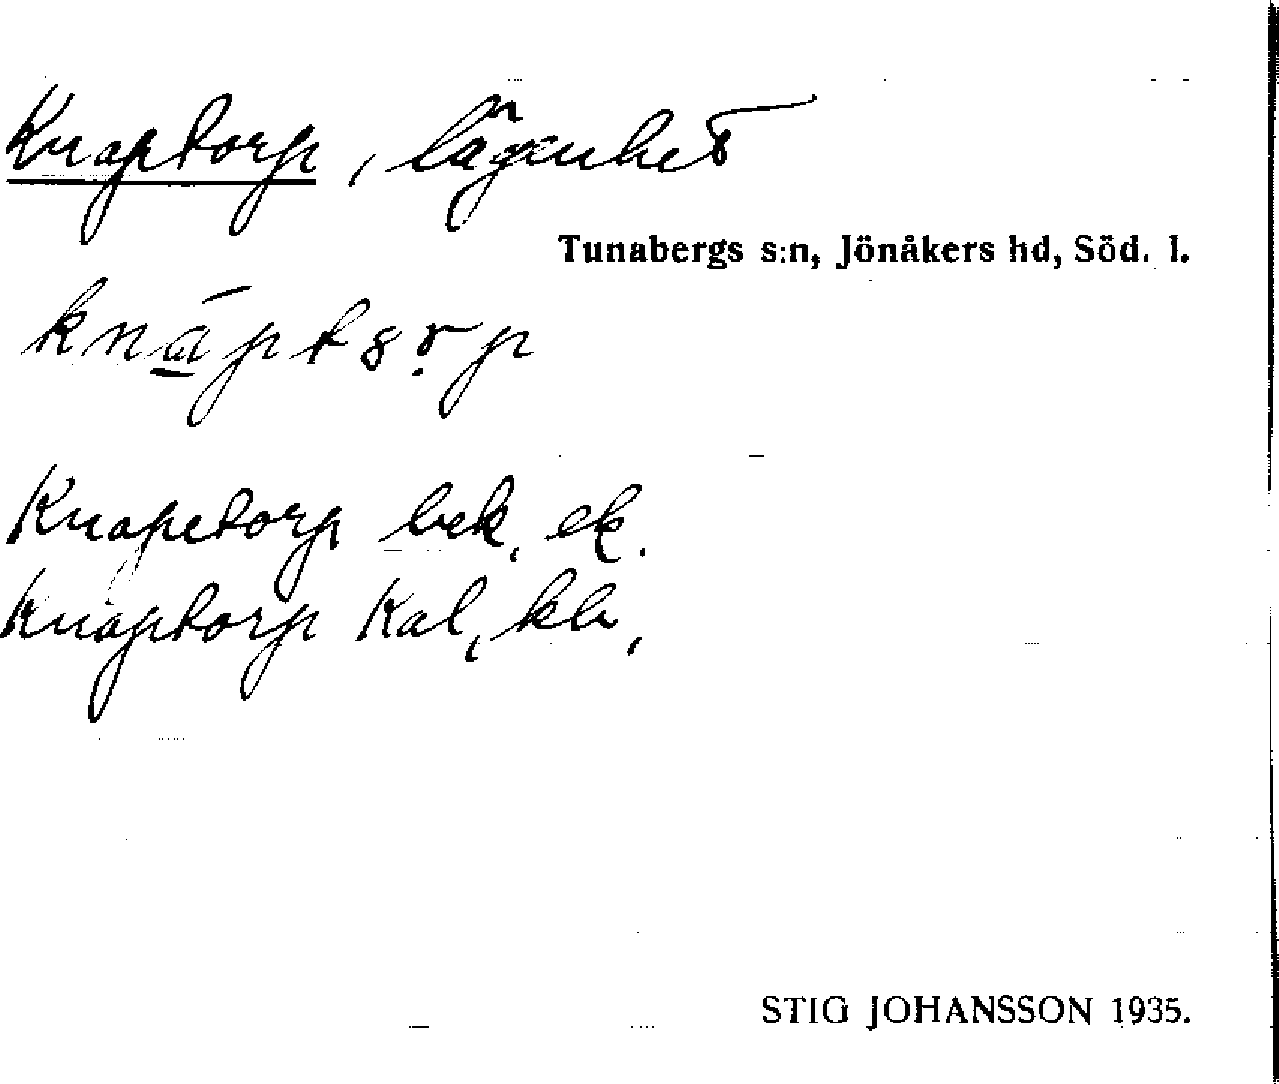 Knaptorp, lägenhet
Tunabergs s:n, Jönåkers hd, Söd. l.
Knapetorp bek, ek.
Knaptorp Kal, kb,
STIG JOHANSSON 1935.